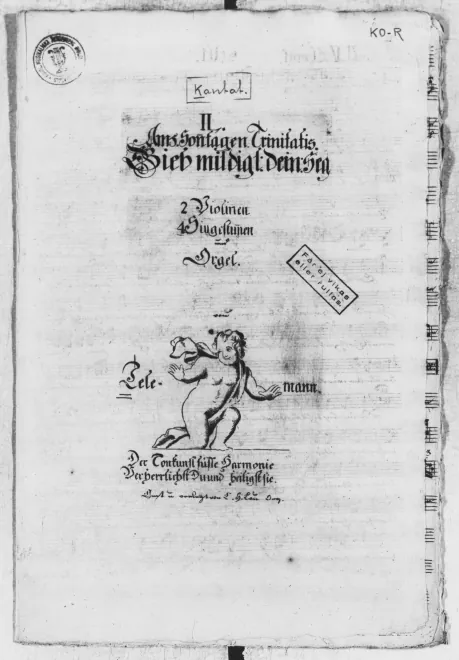 KO-R
Kantat.
II
Am 3 Sontagen Trinitatis.
Gieb mildigl: dein: Seg
2 Violinen
4 Singestimen
und
Orgel.
Får ej vikas
eller rullas.
von
Tele- mann.
Der Tonkunst süsse Harmonie
Verherrlichst Du und heiligst sie.